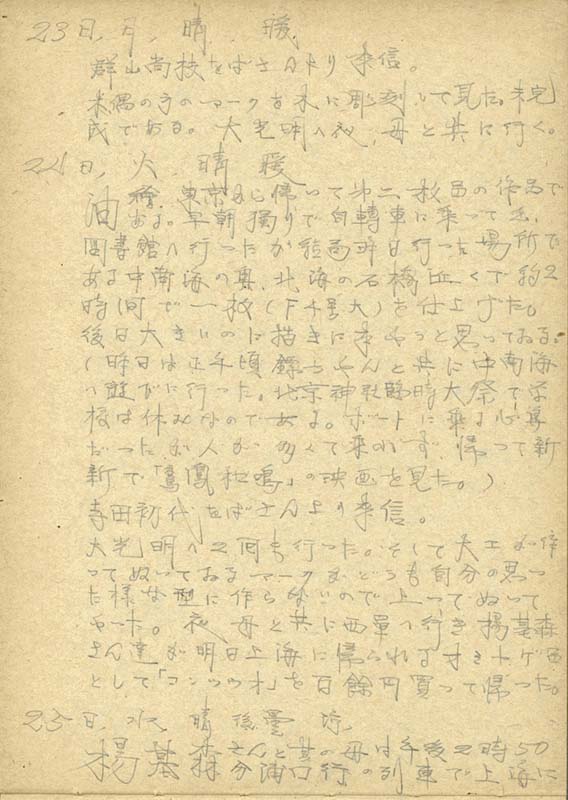 23日、月、晴、暖
群山尚枝をばさんより来信。
米偶の手のマークを木に彫刻して見た。未完
成である。大光明へ夜、母と共に行く。
24日、火、晴、暖
油繪、東京から帰って第二枚目の作品で
ある。早朝獨りで自轉車に乗って
図書館へ行ったが結局昨日行った場所で
ある中南海の裏、北海の石橋近くで約2
時間で一枚(F4号大)を仕上げた。
後日大きいのに描きに来やうと思っておる。
(昨日は正午頃 ちゃんと共に中南海
へ遊びに行った。北京神社臨時大祭で学
校は休みなのである。ボートに乗る心算
だったが人が多くて乗れず、帰って新
新で「鸞鳳和鳴」の映画を見た。)
寺田初代をばさんより来信。
大光明へ2何も行った。そして大工が作
ってぬいておるマークがどうも自分の思っ
た様な型に作らないので上ってぬって
やった。夜母と共に西單へ行き楊基森
さん達が明日上海に帰られるオキミヤゲ
として「コンツウオ」を百餘円買って帰った。
25日、水、晴後曇、
楊基森さんと其の母は午後2時50
分浦口行の列車で上海に